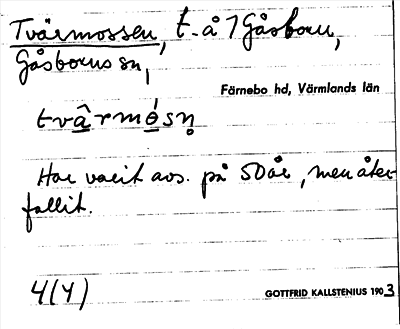 Tvärmossen, t. å 7 Gåsborn,
Gåsborns sn,
Färnebo hd, Värmlands län
tvârmósn̥
Har varit avs. på 50 år, men åter-
fallit.
4(4)
GOTTFRID KALLSTENIUS 1903